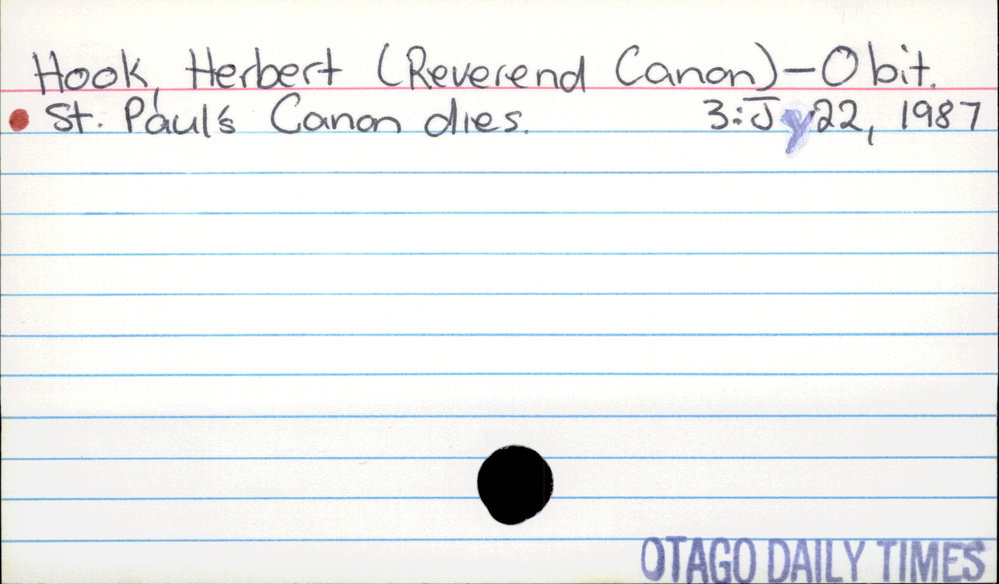 Hook, Herbert (Reverend Canon)—Obit.
St. Paul's Canon dies. 3: Jy 22, 1987
OTAGO DAILY TIMES